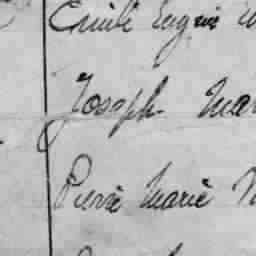 Emile Eugène
Joseph Mar
Pierre Marie